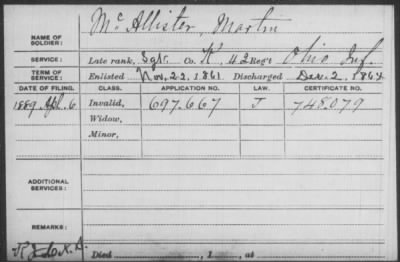 NAME OF SOLDIER: McAllister, Martin
SERVICE: Late rank, Sgt. Co. K, 42 Reg't Ohio Inf.
TERM OF SERVICE: Enlisted Nov. 22, 1861. Discharged Dec. 2, 1864
DATE OF FILING. CLASS. APPLICATION NO. LAW. CERTIFICATE NO.
1889 Apl. 6 Invalid, 697.667 J 748.079
Widow,
Minor,
ADDITIONAL SERVICES:
REMARKS:
Died , 1 , at